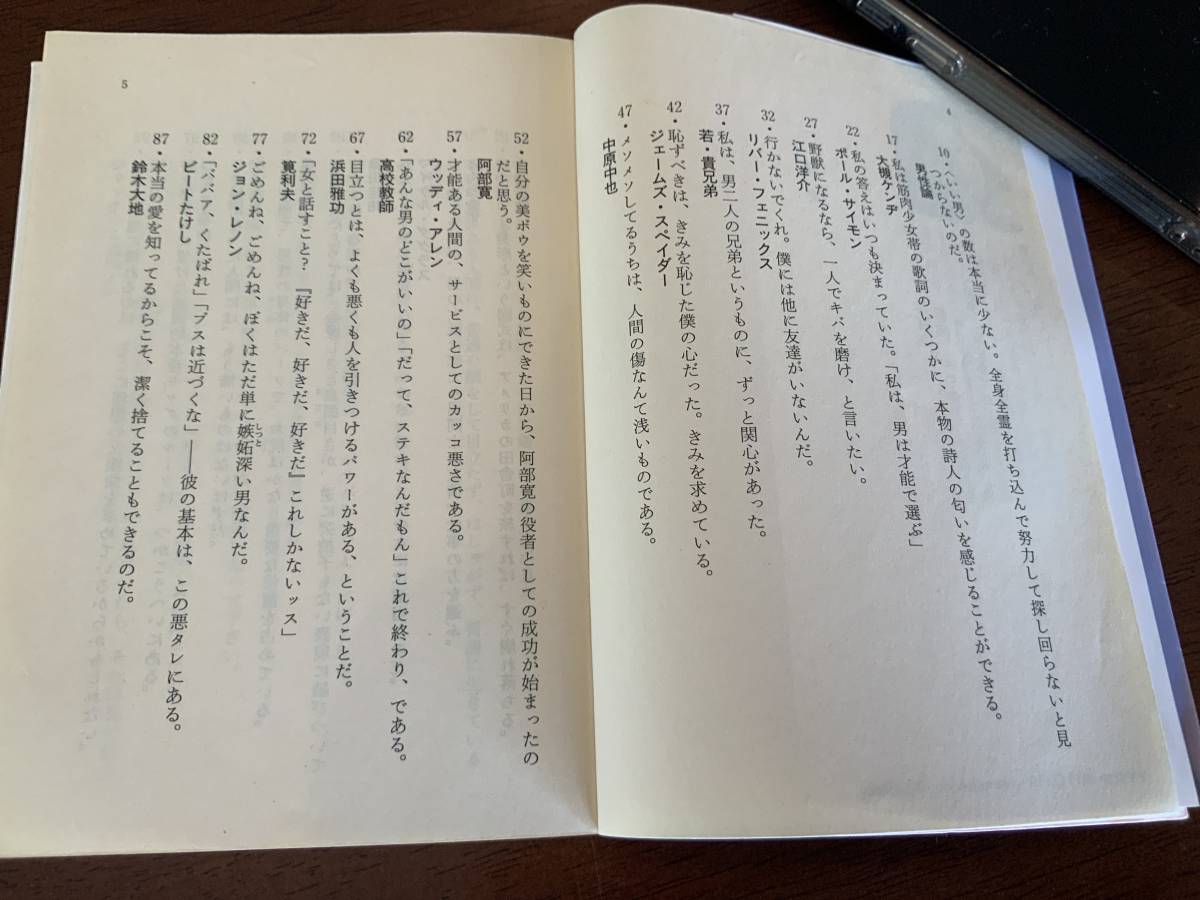 4
10・〈いい男〉の数は本当に少ない。全身全霊を打ち込んで努力して探し回らないと見
つからないのだ。
男性論
17・私は筋肉少女帯の歌詞のいくつかに、本物の詩人の匂いを感じることができる。
大槻ケンヂ
22・私の答えはいつも決まっていた。「私は、男は才能で選ぶ」
ポール・サイモン
27・野獣になるなら、一人でキバを磨け、と言いたい。
江口洋介
32・行かないでくれ。僕には他に友達がいないんだ。
リバー・フェニックス
37・私は、男二人の兄弟というものに、ずっと関心があった。
若・貴兄弟
42・恥ずべきは、きみを恥じた僕の心だった。きみを求めている。
ジェームズ・スペイダー
47・メソメソしてるうちは、人間の傷なんて浅いものである。
中原中也
5
52・自分の美ボウを笑いものにできた日から、阿部寛の役者としての成功が始まったの
だと思う。
阿部寛
57・才能ある人間の、サービスとしてのカッコ悪さである。
ウッディ・アレン
62・「あんな男のどこがいいの」「だって、ステキなんだもん」これで終わり、である。
高校教師
67・目立つとは、よくも悪くも人を引きつけるパワーがある、ということだ。
浜田雅功
72・「女と話すこと？『好きだ、好きだ、好きだ』これしかないッス」
筧利夫
77・ごめんね、ごめんね、ぼくはただ単に嫉妬深い男なんだ。
しっと
ジョン・レノン
82・「ババア、くたばれ」「ブスは近づくな」――彼の基本は、この悪タレにある。
ビートたけし
87・本当の愛を知ってるからこそ、潔く捨てることもできるのだ。
鈴木大地